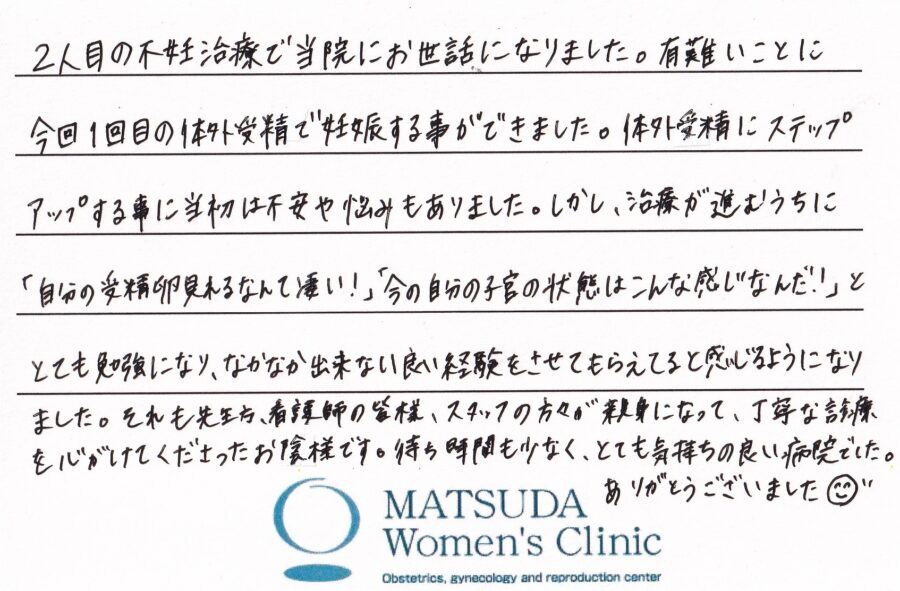 2人目の不妊治療で当院にお世話になりました。有難いことに
今回1回目の体外受精で妊娠する事ができました。体外受精にステップ
アップする事に当初は不安や悩みもありました。しかし、治療が進むうちに
「自分の受精卵見れるなんて凄い!」「今の自分の子宮の状態はこんな感じなんだ!」と
とても勉強になり、なかなか出来ない良い経験をさせてもらえてると感じるようになり
ました。それも先生方、看護師の皆様、スタッフの方々が親身になって、丁寧な診療
を心がけてくださったお陰様です。待ち時間も少なく、とても気持ちの良い病院でした。
ありがとうございました
MATSUDA
Women's Clinic
Obstetrics, gynecology and reproduction center